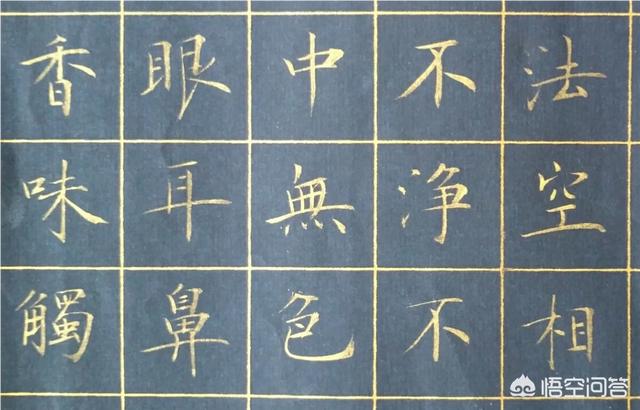 法空相
不淨不
中無色
眼耳鼻
香味觸
悟空问答